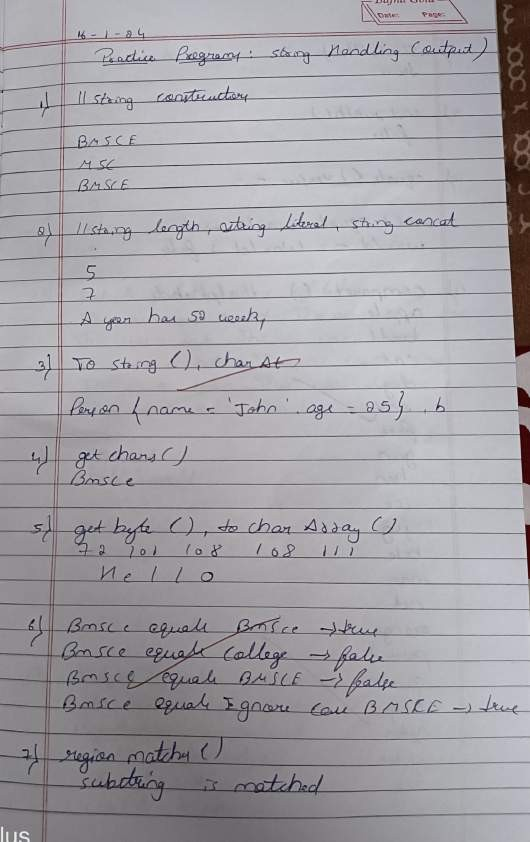 Date:
Page:
16-1-24
Practice Programs: string Handling (output)
1) // string constructors
BMSCE
MSC
BMSCE
2) // string length, string literal, string concat
5
7
A year has 52 weeks,
3) To string (), char At
Person {name = 'John', age = 25}, b
4) get chars ()
Bmsce
5) get byte (), to char Array ()
72 101 108 108 111
H e l l o
6) Bmsce equals Bmsce → true
Bmsce equals College → false
Bmsce equals BMSCE → false
Bmsce equals Ignore case BMSCE → true
7) region matches ()
substring is matched
lus